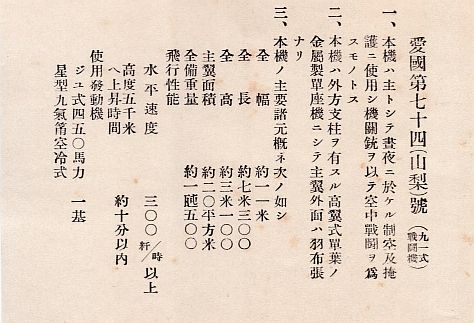 愛國第七十四(山梨)號(九一式戰鬪機)
一、本機ハ主トシテ晝夜ニ於ケル制空及掩
護ニ使用シ機關銃ヲ以テ空中戰鬪ヲ爲
スモノトス
二、本機ハ外方支柱ヲ有スル高翼式單葉ノ
金屬製單座機ニシテ主翼外面ハ羽布張
ナリ
三、本機ノ主要諸元槪ネ次ノ如シ
全幅 約一一米
全長 約七米三〇〇
全高 約三米一〇〇
主翼面積 約二〇平方米
全備重量 約一瓲五〇〇
飛行性能
水平速度 三〇〇粁/時以上
高度五千米
ヘ上昇時間 約十分以内
使用發動機
ジュ式四五〇馬力 一基
星型九氣筩空冷式